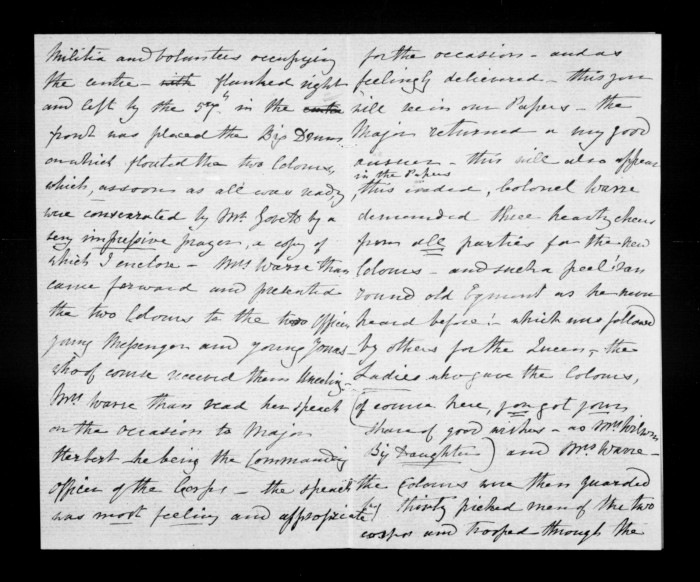 Militia and Volunteers occupying
the centre - with flanked right
and left by the 57th in the centre
front was placed the Big Drum
on which floated the two Colours,
which, as soon as all was ready
were consecrated by Mr. Govett by a
very impressive prayer, a copy of
which I enclose - Mrs Warre than
came forward and presented
the two Colours to the two Officers
young Messenger and young Jonas -
who of course received them kneeling -
Mrs Warre than read her speech
on the occasion to Major
Herbert - he being the Commanding
Officer of the Corps - the speech
was most feeling and appropriate
for the occasion - and as
feelingly delivered - this you
will see in our Papers - the
Major returned a very good
answer - this will also appear
in the Papers
, this ended, Colonel Warre
demanded three hearty cheers
from all parties for the new
Colours - and such a peel ran
round old Egmont as he never
heard before! - which was followed
by others for the Queen, - the
Ladies who gave the Colours,
(of course here, you got your
share of good wishes - as Mrs Wilson's
Big Daughter) and Mrs Warre -
the Colours were then guarded
by thirty picked men of the two
corps and trooped through the